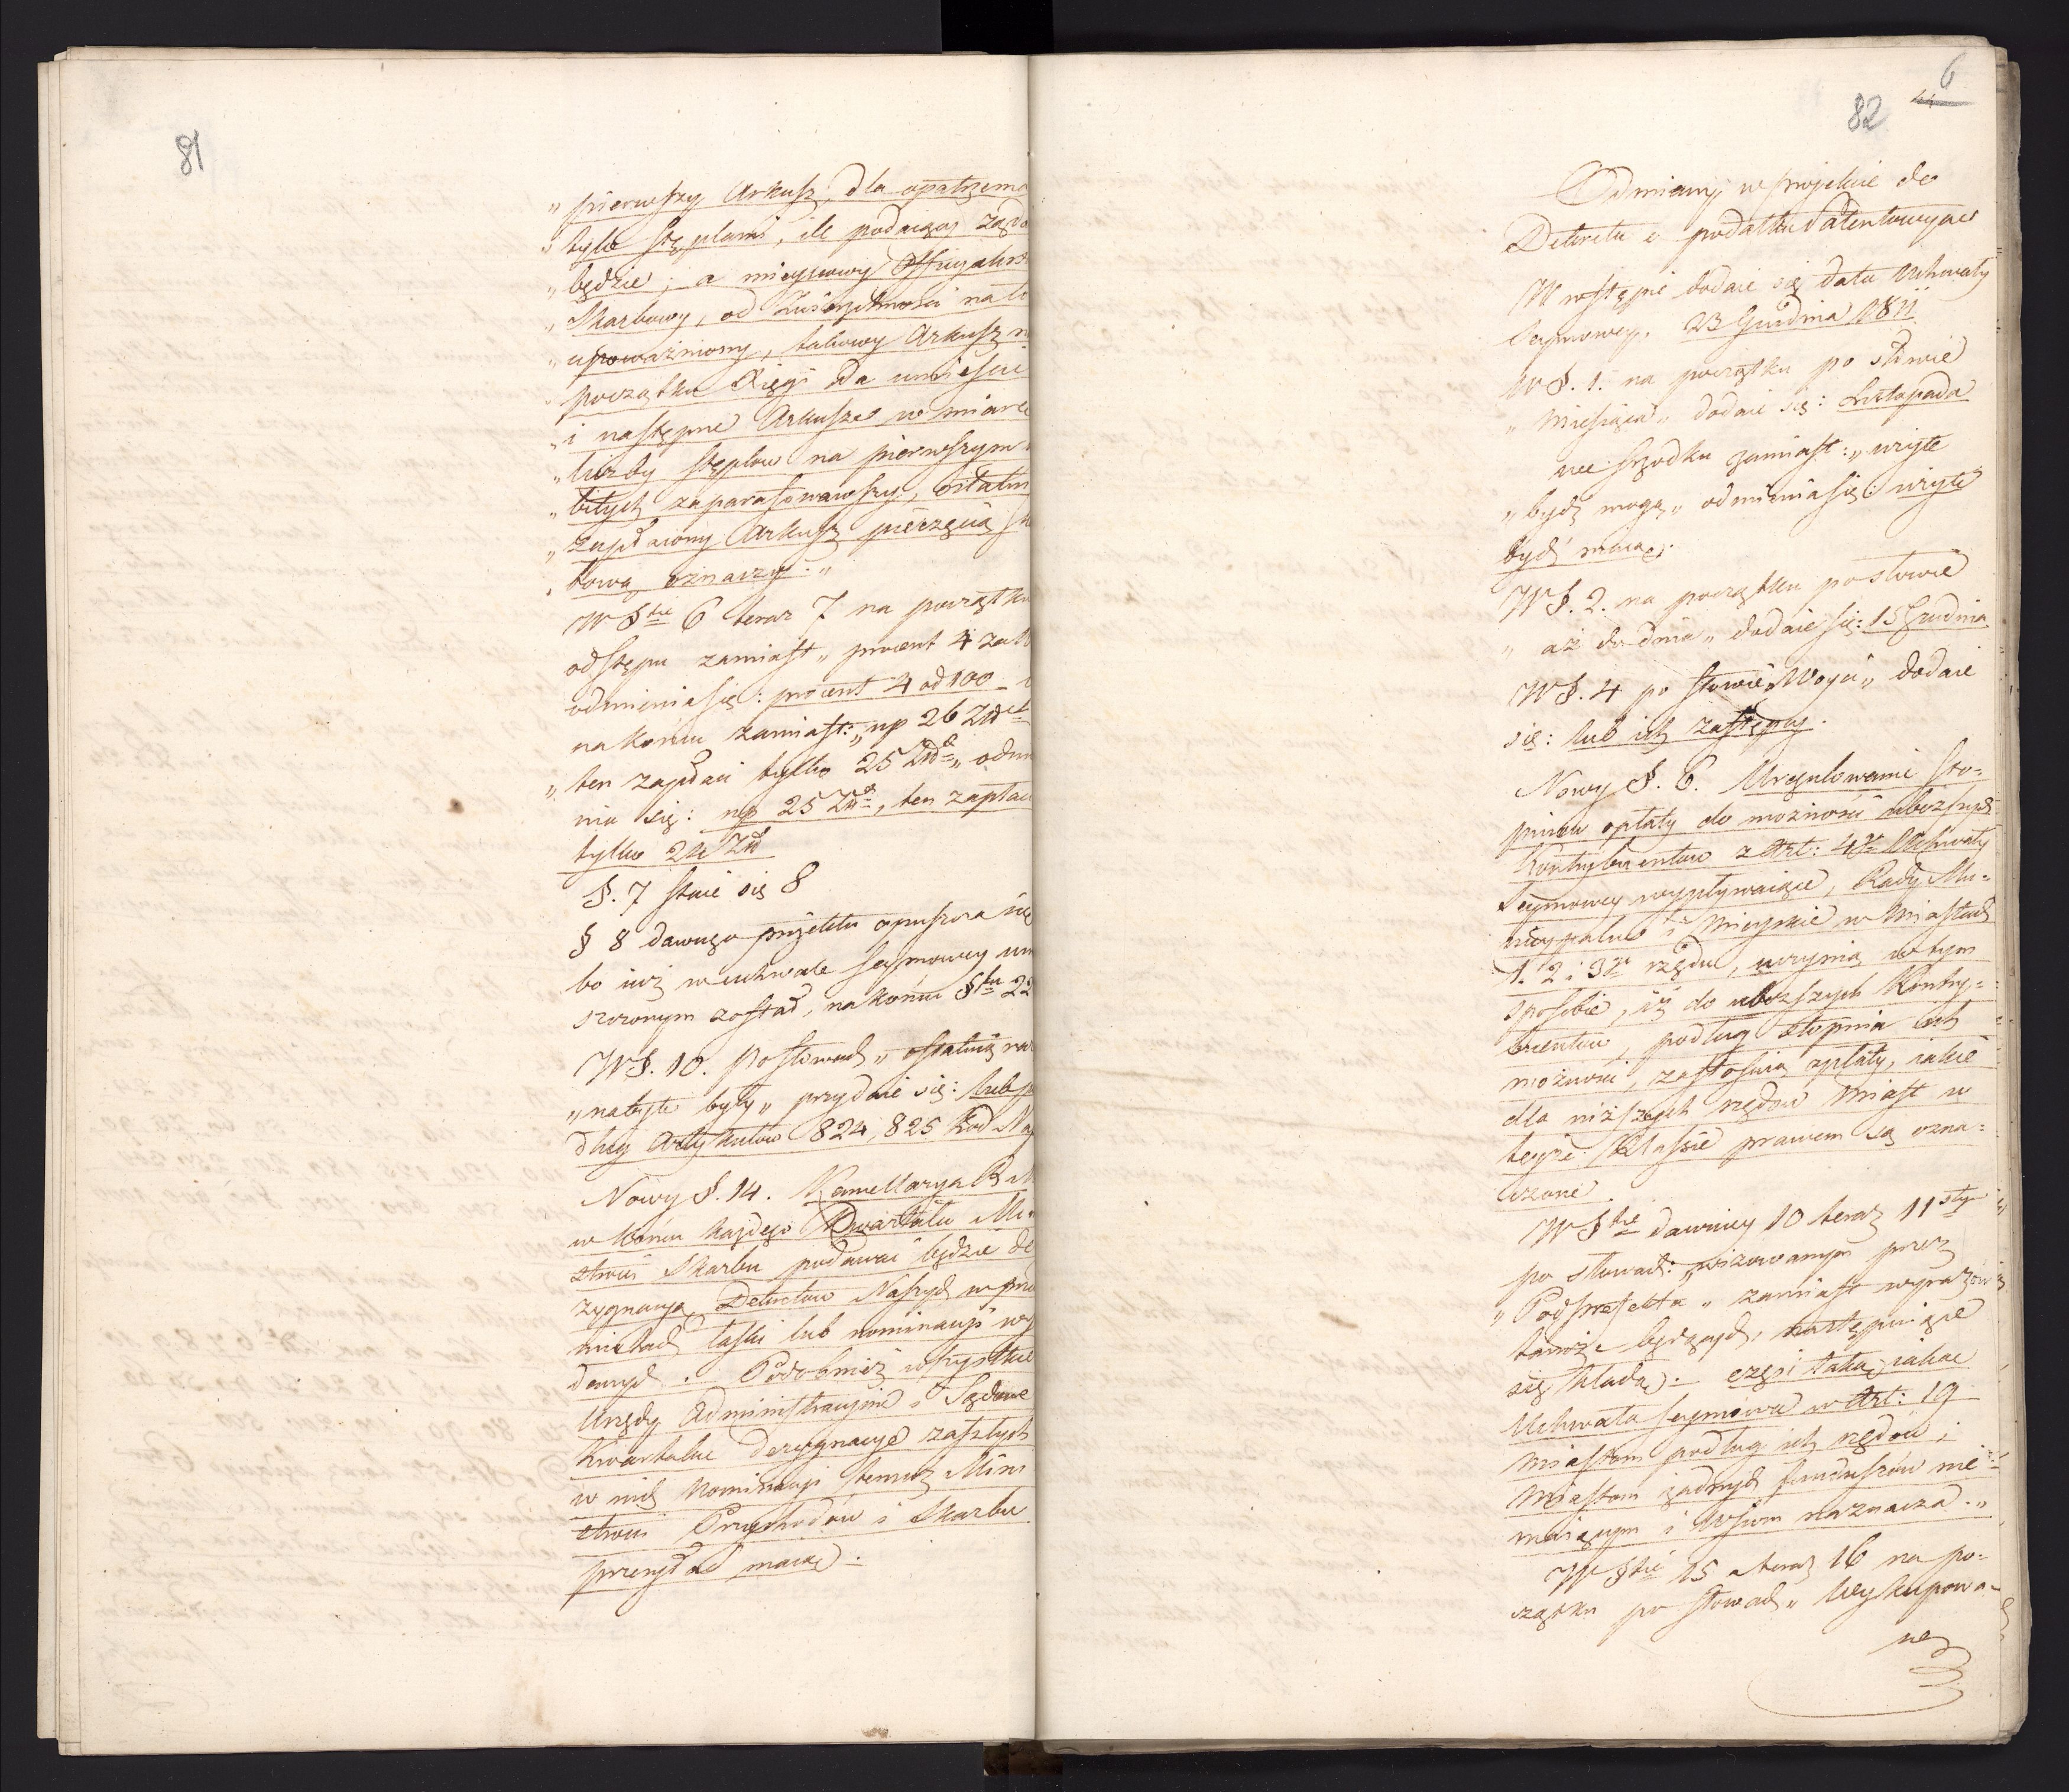 81
„ pierwszy Arkusz, dla opatrzenia
„ tylu stęplami, ile podciągać żąda
„ będzie; a mieyscowy Officyalista
„ Skarbowy, od Zwierzchności na to
„ upoważniony, takowy Arkusz na
„ początku Xięgi da umieścić
„ i następne Arkusze w miarę
„ liczby stęplow na pierwszym
„ bitych zaparafowawszy, ostatni
„ zapłacony Arkusz pieczęcią
„ tową oznaczy.„
W §fie 6 teraz 7 na początku
odstępu zamiast „ procent 4 za
odmienia się: procent 4 od 100
na końcu zamiast: „ np 26 Złł
„ ten zapłaci tylko 25 Złł „ odmie
nia się: np 25 Złł, ten zapłaci
tylko 24 Złł
§. 7 staie się 8
§ 8 dawnego projektu opuszcza się
bo iuż w uchwale seymowey um
szczonym został, na końcu §fu 22
W §. 10. po słowach „ ostatnią ra
„ nabyte były „ przydaie się: lub po
dług Artykułów 824, 825 Kod Na
Nowy §. 14. Kancellarya R M
w końcu każdego Kwartału Mini
strowi Skarbu podawać będzie de
zygnacyą Dekretow Naszych w prze
miotach łaski lub nominacyi wy
danych. Podobnież wszystkie
Urzędy Administracyine i Sądowe
Kwartalne dezygnacye zaszłych
w nich Nominacyi temuż Mini
strowi Przychodów i Skarbu
przesyłać maią.
82
6
Odmiany w projekcie do
Dekretu o podatku Patentowym
W wstępie dodaie się data Uchwały
Seymowey. 23 Grudnia 1811
W §. 1. na początku po słowie
„ Miesiąca „ dodaie się: Listopada
we szrodku zamiast: „ wzięte
„ bydź mogą „ odmienia się: wzięte
bydź maią.
W §. 2. na początku po słowie
„ aż do dnia „ dodaie się: 15 Grudnia
W §. 4 po słowie „ Woyci „ dodaie
się: lub ich zastępcy.
Nowy §. 6. Uregulowanie sto=
pniow opłaty do możności uboższych
Kontrybuentow z Art: 4go Uchwały
Seymowey wypływaiące, Rady Mu=
nicypalne i Mieyskie w Miastach
1. 2 i 3go rzędu, uczynią w tym
sposobie, iż do uboższych Kontry=
buentow, podług stopnia ich
możności, zastosuią opłaty, iakie
dla niższych rzędow Miast w
teyże Klassie prawem są ozna=
czone.
W §fie dawniey 10 teraz 11stym
po słowach: „ wizowanym przez
„ Podprefekta „ zamiast wyrazów
tamże będących, następuiące
się kładą: część taką, iaką
Uchwała seymowa w Art: 19
Miastom podług ich rzędów i
Miastom żadnych funduszów nie=
maiącym i Wsiom naznacza.„
W §fie 15 a teraz 16 na po=
czątku po słowach „ Wykupowa=
ne